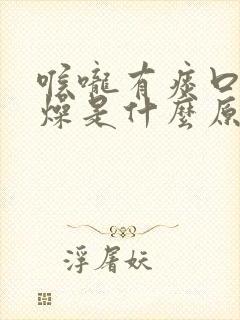 喉嚨有痰口
燥是什麼原
浮屠妖